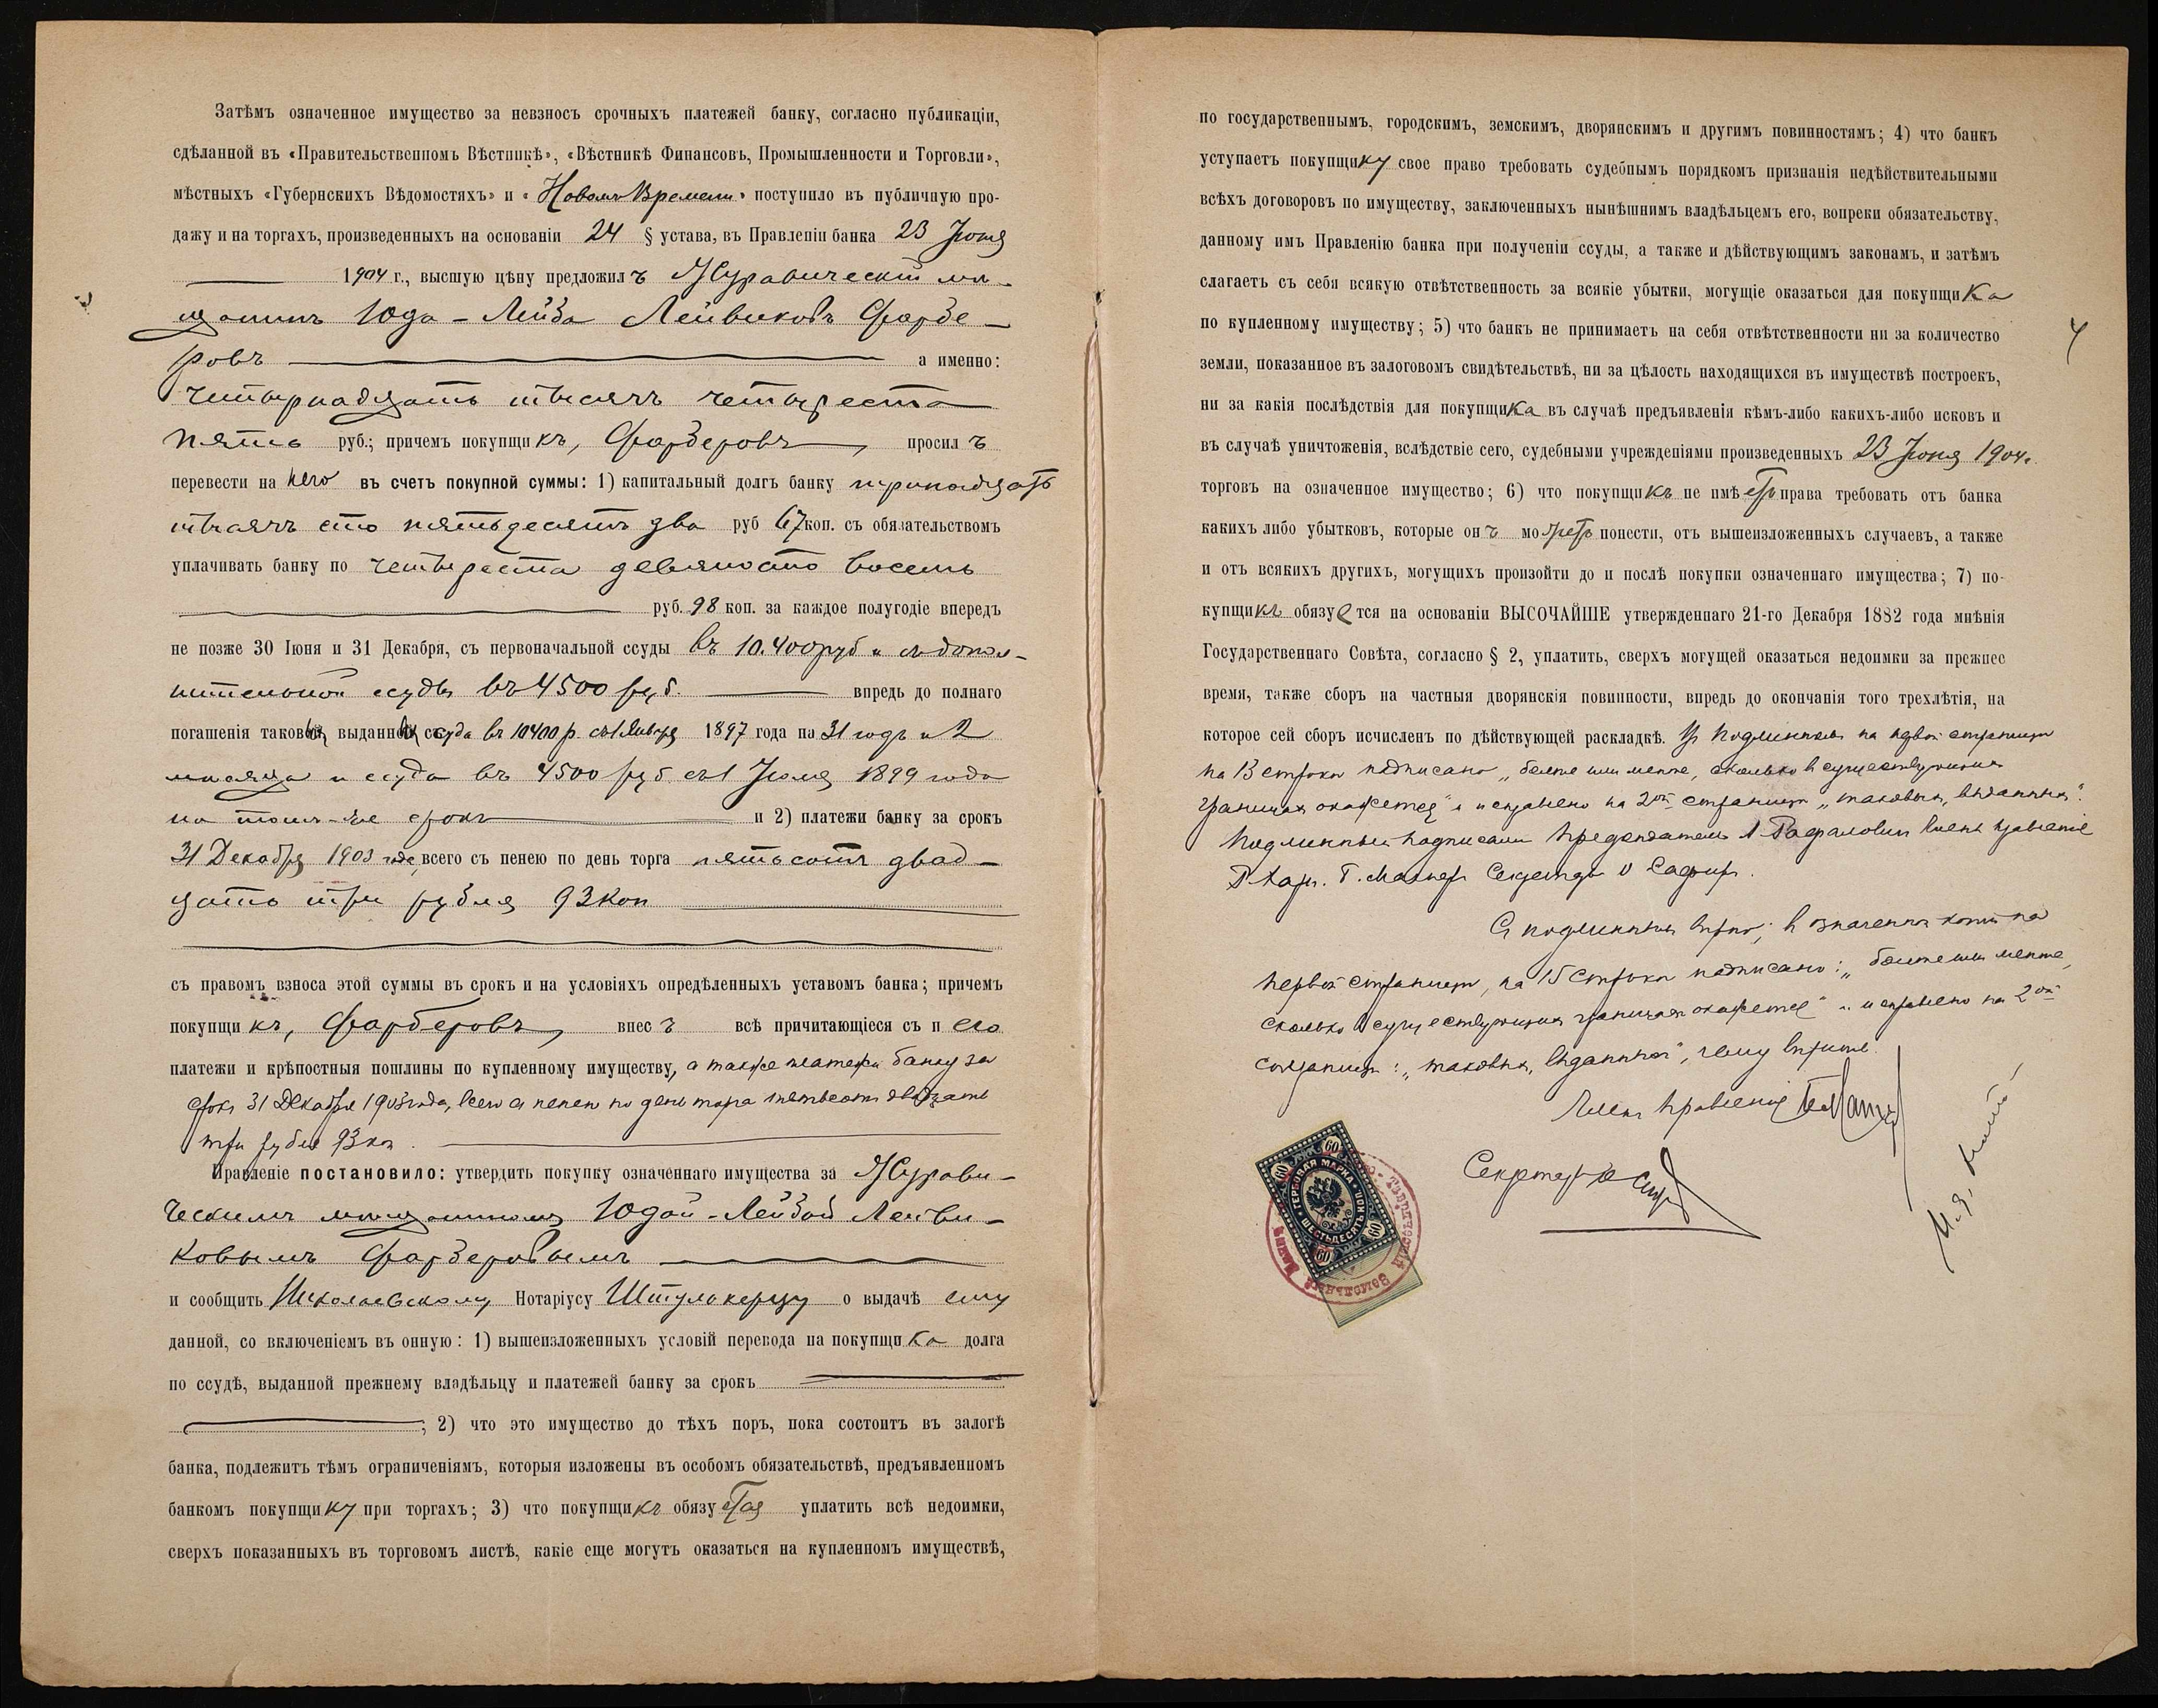 Затѣмъ означенное имущество за невзносъ срочныхъ платежей банку, согласно публикаціи,
сдѣланной въ «Правительственномъ Вѣстникѣ», «Вѣстникѣ Финансовъ, Промышленности и Торговли»,
мѣстныхъ «Губернскихъ Вѣдомостяхъ» и «Новомъ Времени» поступило въ публичную про-
дажу и на торгахъ, произведенныхъ на основаніи 24 § устава, въ Правленіи банка 23 Іюня
1904 г., высшую цѣну предложилъ Журавическій мѣ-
щанинъ Юда-Лейба Лейвиковъ Фарбе-
ровъ а именно:
четырнадцать тысячъ четыреста
пять руб.; причемъ покупщикъ, Фарберовъ, просилъ
перевести на него въ счетъ покупной суммы: 1) капитальный долгъ банку тринадцать
тысячъ сто пятьдесятъ два руб 67 коп. съ обязательствомъ
уплачивать банку по четыреста девяносто восемь
руб. 98 коп. за каждое полугодіе впередъ
не позже 30 Іюня и 31 Декабря, съ первоначальной ссуды въ 10.400 руб и съ допол-
нительной ссуды въ 4500 руб. впредь до полнаго
погашенія таковыхъ, выданныхъ ссуда въ 10400 р. съ 1 Января 1897 года на 31 годъ и 2
мѣсяца и ссуда въ 4500 руб. съ 1 Іюля 1899 года
на тотъ-же срокъ и 2) платежи банку за срокъ
31 Декабря 1903 года, всего съ пенею по день торга пятьсотъ двад-
цать три рубля 93 коп
съ правомъ взноса этой суммы въ срокъ и на условіяхъ опредѣленныхъ уставомъ банка; причемъ
покупщикъ, Фарберовъ, внесъ всѣ причитающіеся съ него
платежи и крѣпостныя пошлины по купленному имуществу, а также платежи банку за
срокъ 31 Декабря 1903 года, всего съ пенею по день торга пятьсотъ двадцать
три рубля 93 коп.
Правленіе постановило: утвердить покупку означеннаго имущества за Журави-
ческимъ мѣщаниномъ Юдой-Лейбой Лейви-
ковымъ Фарберовымъ
и сообщить Николаевскому Нотаріусу Штулькерцу о выдачѣ ему
данной, со включеніемъ въ онную: 1) вышеизложенныхъ условій перевода на покупщика долга
по ссудѣ, выданной прежнему владѣльцу и платежей банку за срокъ
; 2) что это имущество до тѣхъ поръ, пока состоитъ въ залогѣ
банка, подлежитъ тѣмъ ограниченіямъ, которыя изложены въ особомъ обязательствѣ, предъявленномъ
банкомъ покупщику при торгахъ; 3) что покупщикъ обязуется уплатить всѣ недоимки,
сверхъ показанныхъ въ торговомъ листѣ, какіе еще могутъ оказаться на купленномъ имуществѣ,
по государственнымъ, городскимъ, земскимъ, дворянскимъ и другимъ повинностямъ; 4) что банкъ
уступаетъ покупщику свое право требовать судебнымъ порядкомъ признанія недѣйствительными
всѣхъ договоровъ по имуществу, заключенныхъ нынѣшнимъ владѣльцемъ его, вопреки обязательству,
данному имъ Правленію банка при полученіи ссуды, а также и дѣйствующимъ законамъ, и затѣмъ
слагаетъ съ себя всякую отвѣтственность за всякіе убытки, могущіе оказаться для покупщика
по купленному имуществу; 5) что банкъ не принимаетъ на себя отвѣтственности ни за количество
4
земли, показанное въ залоговомъ свидѣтельствѣ, ни за цѣлость находящихся въ имуществѣ построекъ,
ни за какія послѣдствія для покупщика въ случаѣ предъявленія кѣмъ-либо какихъ-либо исковъ и
въ случаѣ уничтоженія, вслѣдствіе сего, судебными учрежденіями произведенныхъ 23 Іюня 1904 г.
торговъ на означенное имущество; 6) что покупщикъ не имѣетъ права требовать отъ банка
какихъ либо убытковъ, которые онъ можетъ понести, отъ вышеизложенныхъ случаевъ, а также
и отъ всякихъ другихъ, могущихъ произойти до и послѣ покупки означеннаго имущества; 7) по-
купщикъ обязуется на основаніи ВЫСОЧАЙШЕ утвержденнаго 21-го Декабря 1882 года мнѣнія
Государственнаго Совѣта, согласно § 2, уплатить, сверхъ могущей оказаться недоимки за прежнее
время, также сборъ на частныя дворянскія повинности, впредь до окончанія того трехлѣтія, на
которое сей сборъ исчисленъ по дѣйствующей раскладкѣ. Въ подлинномъ на первой страницѣ
на 13 строкѣ надписано „болѣе или менѣе, сколько въ существующихъ
границахъ окажется“ и исправлено на 2ой страницѣ „таковыхъ, выданныхъ“.
Подлинный подписали Предсѣдатель А. Рафаловичъ Членъ Правленія
Г. Маснеръ Секретарь
Съ подлиннымъ вѣрно; въ означенной копіи на
первой страницѣ, на 15 строкѣ надписано: „болѣе или менѣе,
сколько въ существующихъ границахъ окажется“ и исправлено на 2ой
страницѣ: „таковыхъ, выданныхъ“, чему вѣрить.
Членъ Правленія
Секретарь
ГЕРБОВАЯ МАРКА
ШЕСТЬДЕСЯТЪ КОП.
60 60 60 60